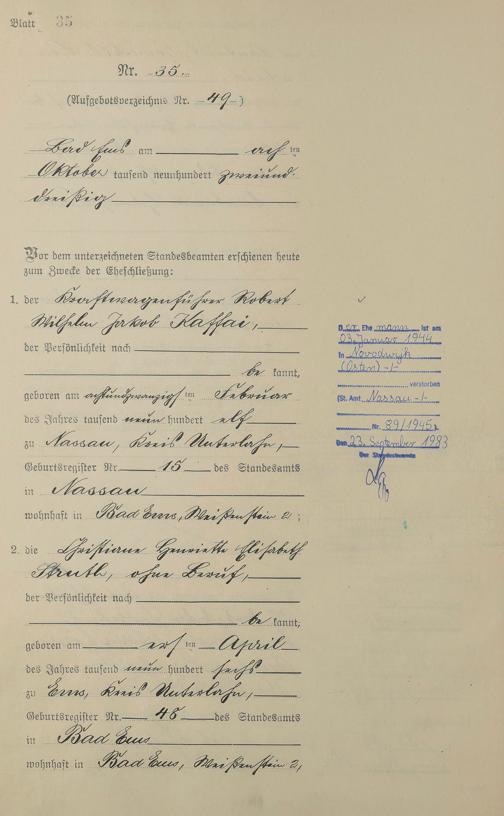 Blatt 35
Nr. 35.
(Aufgebotsverzeichnis Nr. 49)
Bad Ems am acht ten
Oktober tausend neunhundert zweiund-
dreißig
Vor dem unterzeichneten Standesbeamten erschienen heute
zum Zwecke der Eheschließung:
1. der Kraftwagenführer Robert
Wilhelm Jakob Kaffai,
der Persönlichkeit nach
be kannt,
geboren am achtundzwanzigs ten Februar
des Jahres tausend neun hundert elf
zu Nassau, Kreis Unterlahn,
Geburtsregister Nr. 15 des Standesamts
in Nassau
wohnhaft in Bad Ems, Weißenstein 2;
2. die Christiane Henriette Elisabeth
Struth, ohne Beruf,
der Persönlichkeit nach
be kannt,
geboren am ers ten April
des Jahres tausend neun hundert sechs
zu Ems, Kreis Unterlahn,
Geburtsregister Nr. 48 des Standesamts
in Bad Ems
wohnhaft in Bad Ems, Weißenstein 2,
D er Ehe mann ist am
03. Januar 1944
in Novodwijk
(Osten) -/-
verstorben
(St. Amt Nassau -/-
Nr. 89/1945)
Den 23. September 1983
Der Standesbeamte